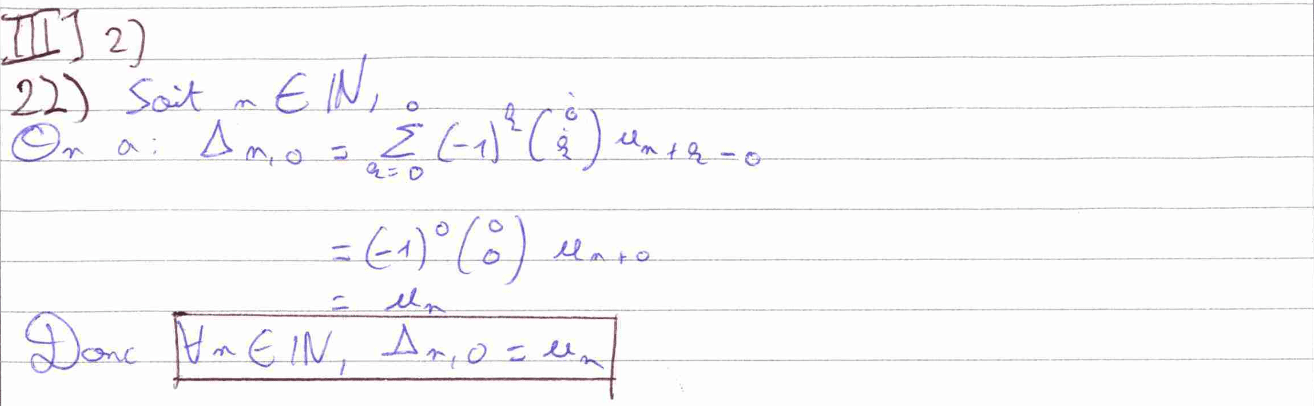 III] 2)
22) Soit n ∈ ℕ,
On a : Δn,0 = ∑_{k=0}^{0} (-1)^k (0 k) u_{n+k-0}
= (-1)^0 (0 0) u_{n+0}
= u_n
Donc ∀n ∈ ℕ, Δn,0 = u_n